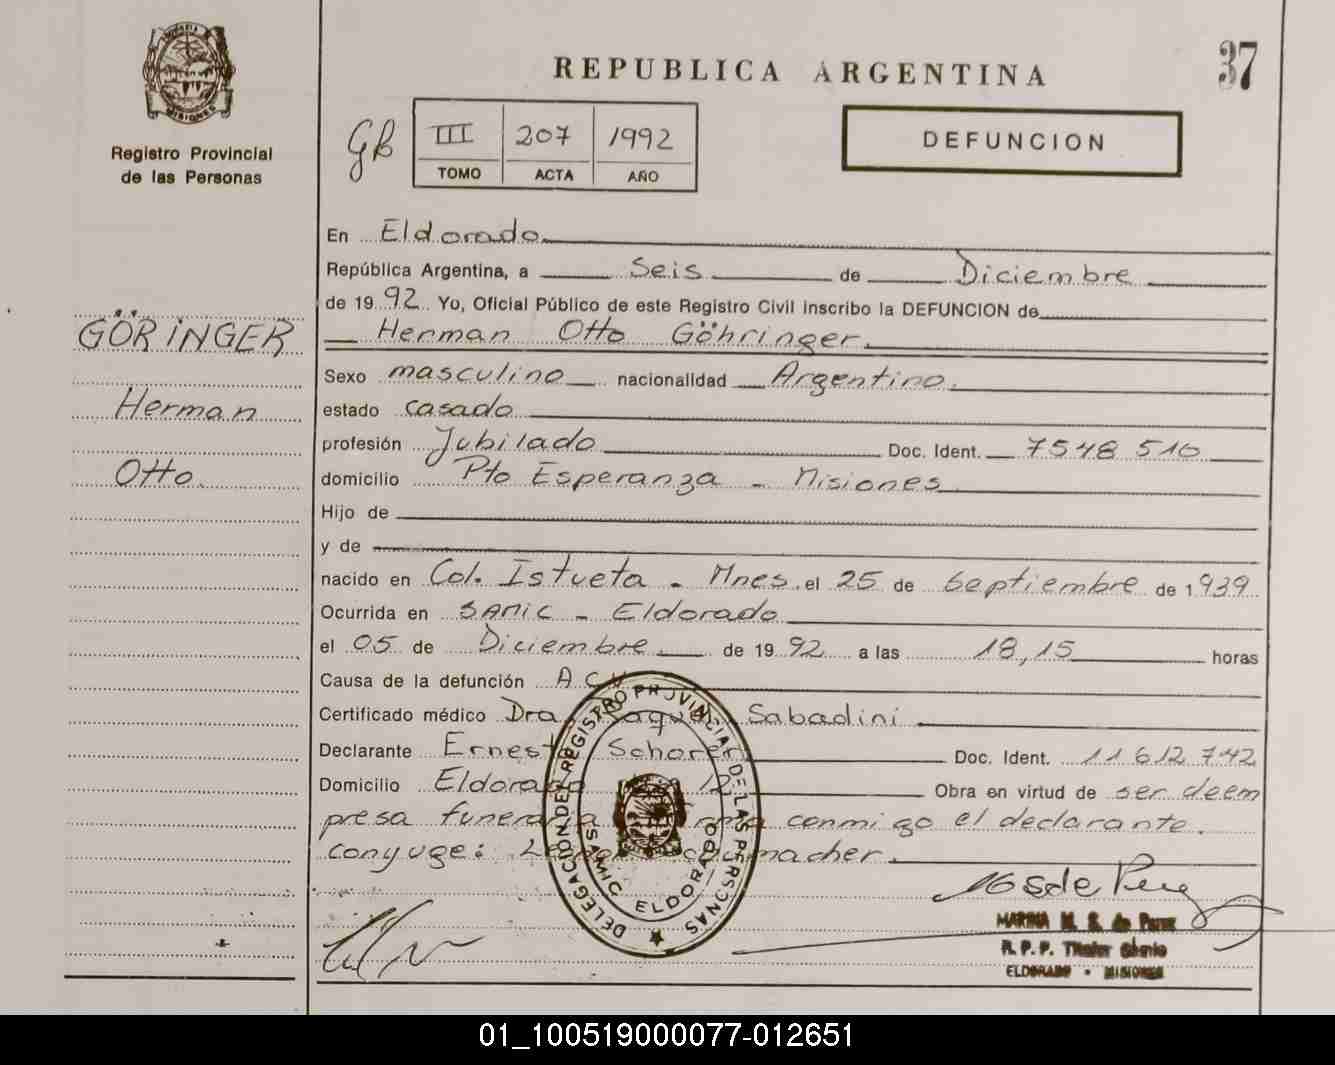 MISIONES
Registro Provincial
de las Personas
REPUBLICA ARGENTINA
37
GB
III 207 1992
TOMO ACTA AÑO
DEFUNCION
GÖRINGER
Herman
Otto.
En Eldorado
República Argentina, a Seis de Diciembre
de 1992 Yo, Oficial Público de este Registro Civil inscribo la DEFUNCION de
Herman Otto Göhringer.
Sexo masculino nacionalidad Argentino.
estado casado
profesión Jubilado Doc. Ident. 7548 510
domicilio Pto Esperanza - Misiones
Hijo de
y de
nacido en Col. Istueta - Mnes. el 25 de Septiembre de 1939
Ocurrida en SAMIC - Eldorado
el 05 de Diciembre de 1992 a las 18,15 horas
Causa de la defunción ACV
Certificado médico Dra. Raquel Sabadini
Declarante Ernesto Schorer Doc. Ident. 11 612 742
Domicilio Eldorado 12 Obra en virtud de ser deem
presa funeraria conmigo el declarante.
conyuge:
DELEGACION DEL REGISTRO PROVINCIAL DE LAS PERSONAS
SAMIC ELDORADO
MARINA de Perez
R.P.P. Titular
ELDORADO - MISIONES
01_100519000077-012651